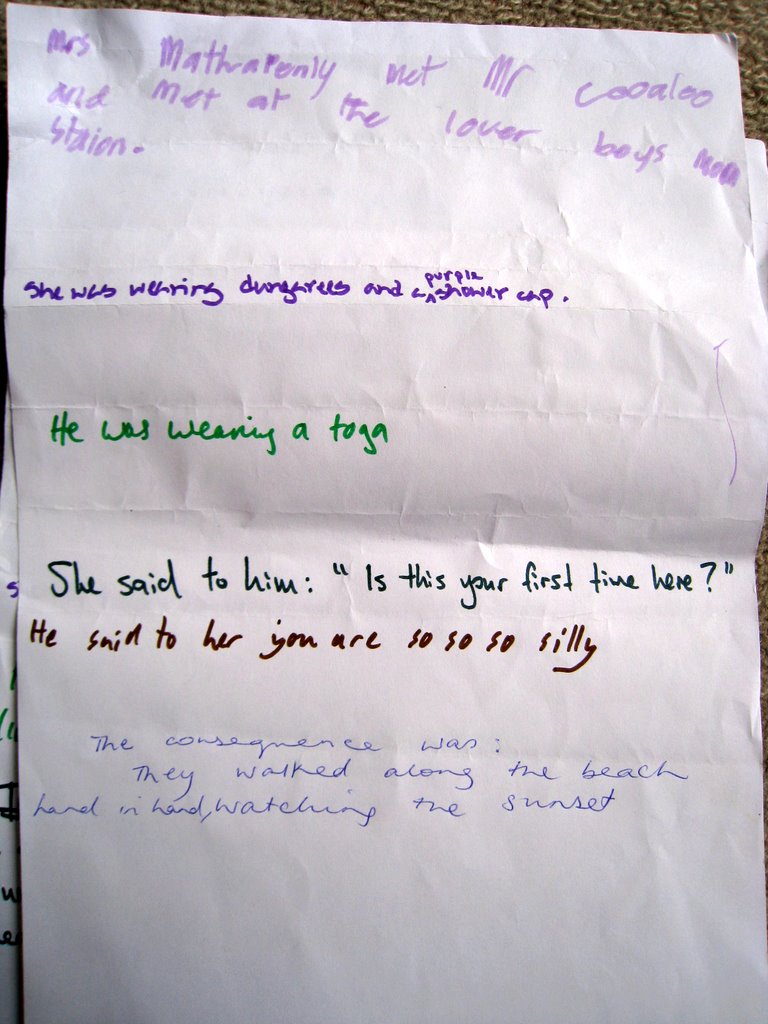 Mrs Mathraponly met Mr cooaloo
and met at the lover boys
Staion.
she was wearing dungarees and a purple shower cap.
He was wearing a toga
She said to him: "Is this your first time here?"
He said to her you are so so so silly
The consequence was:
They walked along the beach
hand in hand, watching the sunset